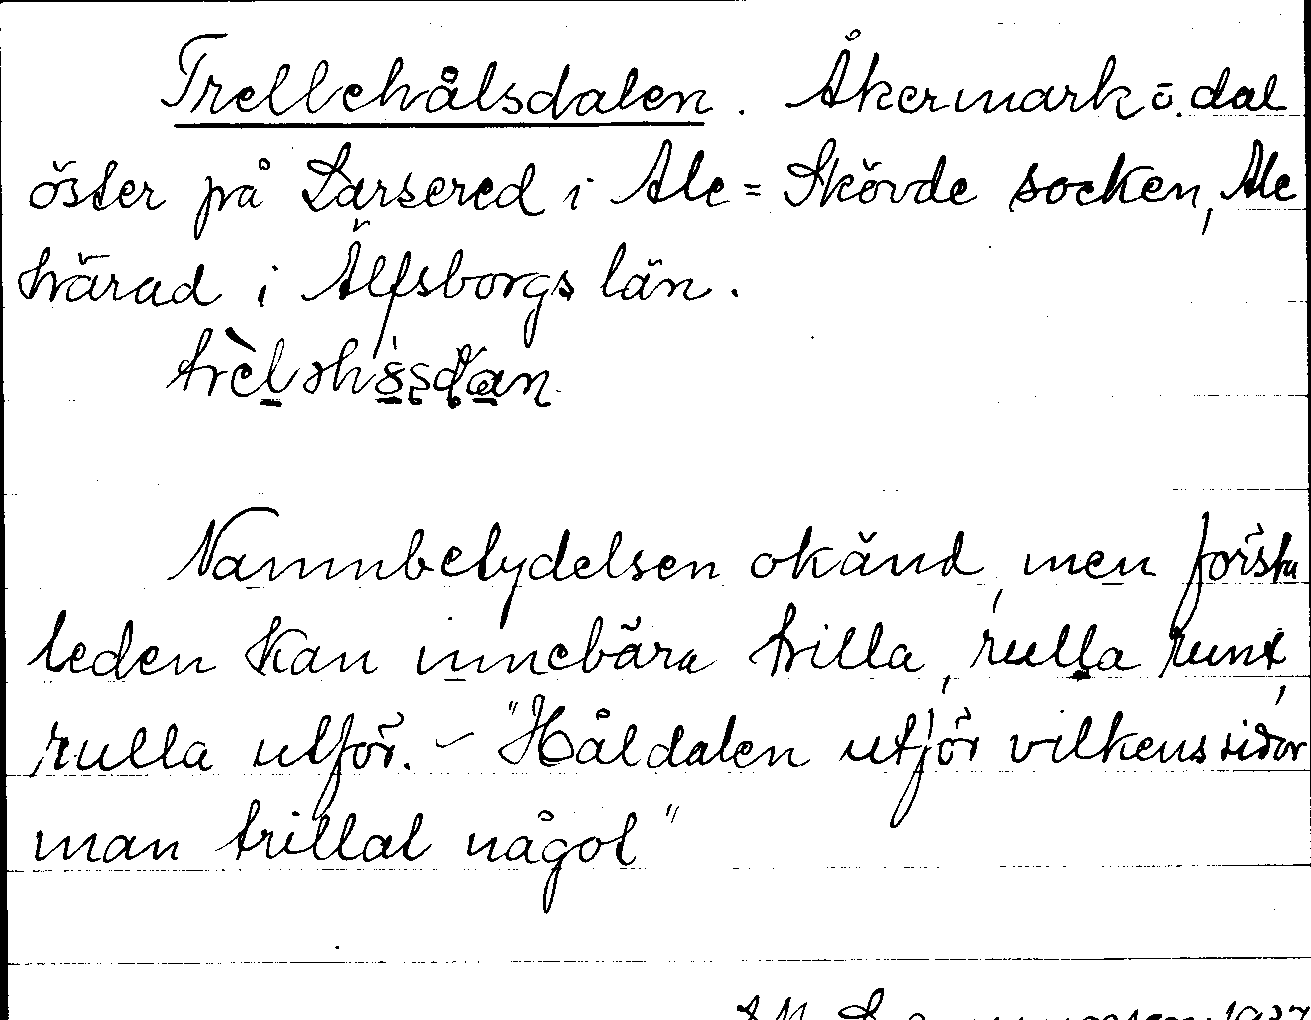 Trellehålsdalen. Åkermark o. dal
öster på Larsered i Ale=Skövde socken, Ale
härad i Älfsborgs län.
Namnbetydelsen okänd, men första
leden kan innebära trilla, rulla runt,
rulla utför. – "Håldalen utför vilkens sidor
man trillat något"
1937